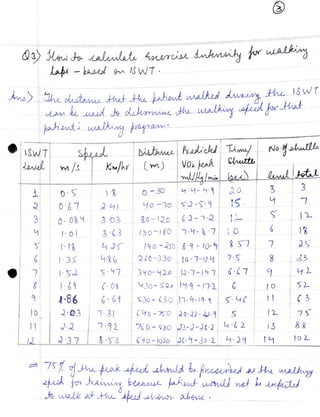 3
Q3) How to calculate Exercise Intensity for walking
laps - based on ISWT.
Ans) The distance that the patient walked during the ISWT
can be used to determine the walking speed for that
patient's walking program.
ISWT level Speed m/s Km/hr Distance (m) Predicted VO2 peak ml/kg/min Time/ Shuttle (sec) No of shuttle level total
1 0.5 1.8 0-30 4.4-4.9 20 3 3
2 0.67 2.41 40-70 5.2-5.9 15 4 7
3 3.03 80-120 6.2-7.2 12 5 12
4 1.01 3.63 130-180 7.4-8.7 10 6 18
5 1.18 4.25 8.57 7 25
6 1.35 4.86 260-330 7.5 8 33
7 1.52 5.47 340-420 12.7-14.7 6.67 9 42
8 1.69 6.08 430-520 10 52
9 1.86 6.69 530-630 5.46 11 63
10 2.03 7.31 640-750 5 12 75
11 2.2 7.92 4.62 13 88
12 2.37 8.53 4.29 14 102
⇒ 75% of the peak speed should be prescribed as the walking
speed for training because patient would not be expected
to walk at the speed shown above.